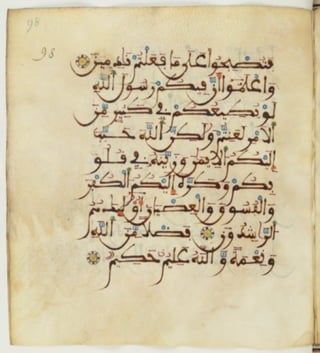 98
98
فتصبحوا على ما فعلتم ندمين
واعلموا ان فيكم رسول الله
لو يطيعكم في كثير من
الامر لعنتم ولكن الله حبب
اليكم الايمن وزينه في قلو
بكم وكره اليكم الكفر
والفسوق والعصيان اوليك هم
الرشدون فضلا من الله
ونعمة والله عليم حكيم